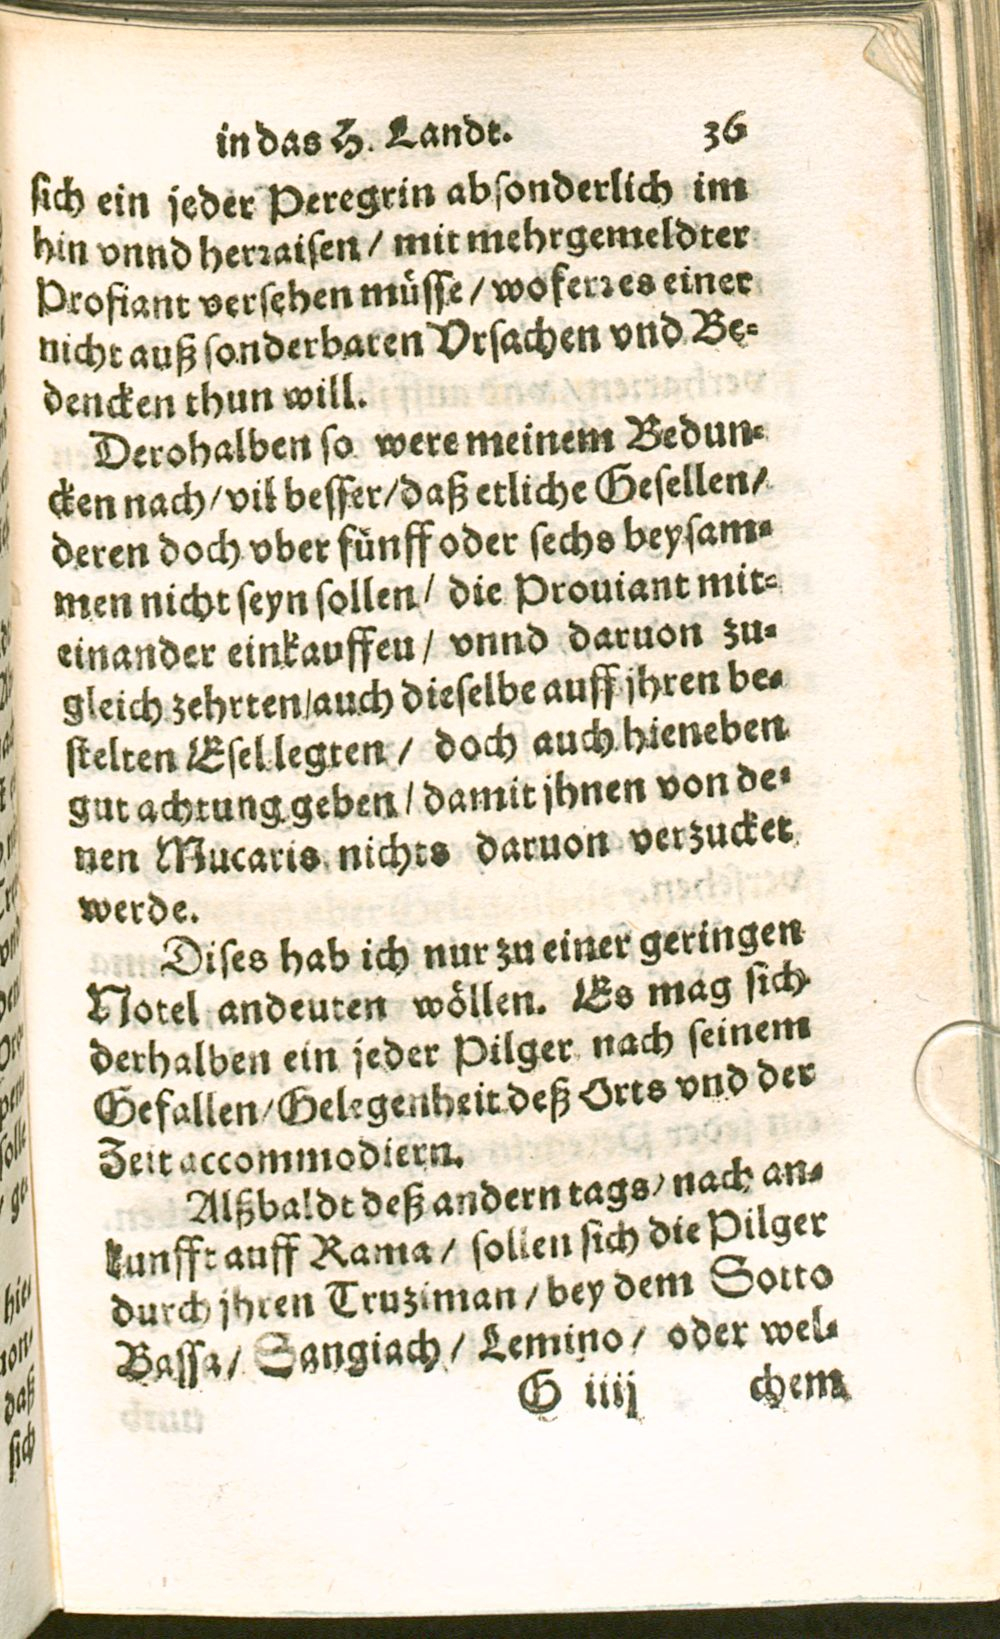 in das H. Landt. 36
sich ein jeder Peregrin absonderlich im
hin vnnd herꝛaisen / mit mehrgemeldter
Profiant versehen müsse / woferꝛ es einer
nicht auß sonderbaren Vrsachen vnd Be-
dencken thun will.
Derohalben so were meinem Bedun-
cken nach / vil besser / daß etliche Gesellen /
deren doch vber fünff oder sechs beysam-
men nicht seyn sollen / die Prouiant mit-
einander einkauffeu / vnnd daruon zu-
gleich zehrten / auch dieselbe auff jhren be-
stelten Esel legten / doch auch hieneben
gut achtung geben / damit jhnen von de-
nen Mucaris nichts daruon verzucket
werde.
Dises hab ich nur zu einer geringen
Notel andeuten wöllen. Es mag sich
derhalben ein jeder Pilger nach seinem
Gefallen / Gelegenheit deß Orts vnd der
Zeit accommodiern.
Alßbaldt deß andern tags / nach an-
kunfft auff Rama / sollen sich die Pilger
durch jhren Truziman / bey dem Sotto
Bassa / Sangiach / Lemino / oder wel-
G iiij chem
hier
daß
sich